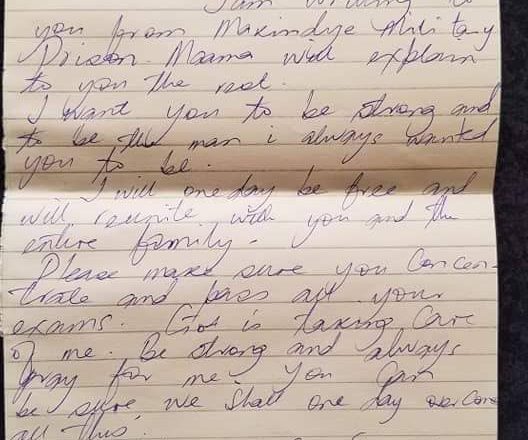 I am writing to
you from Makindye Military
Prison. Maama will explain
to you the rest.
I want you to be strong and
to be the man i always wanted
you to be.
I will one day be free and
will reunite with you and the
entire family.
Please make sure you concen-
trate and pass all your
exams. God is taking care
of me. Be strong and always
pray for me. You can
be sure, we shall one day overcome
all this.